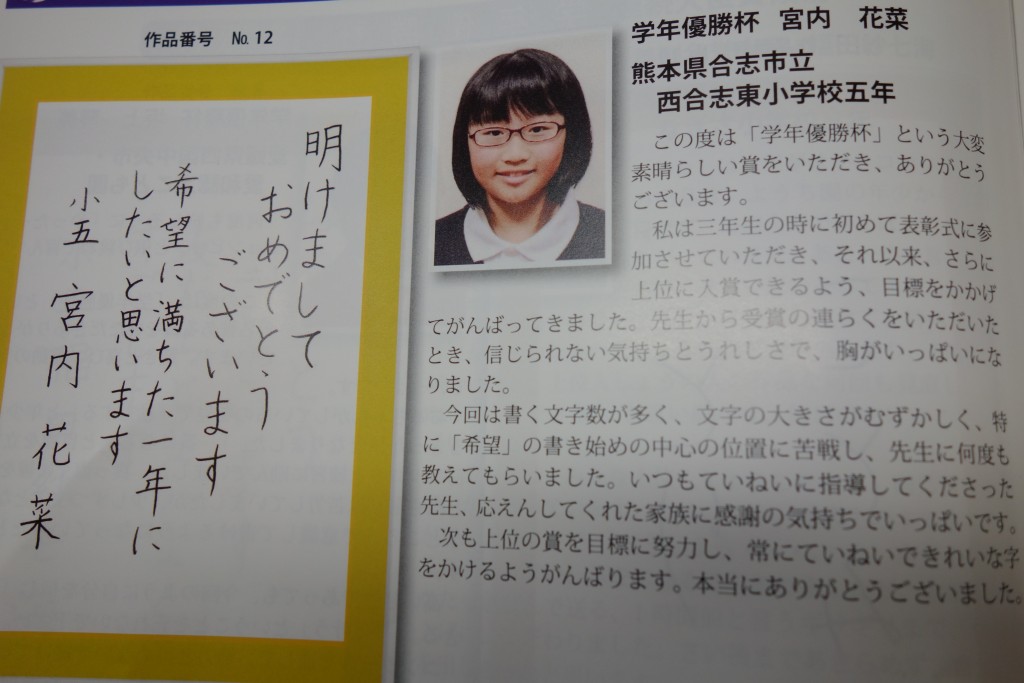 作品番号 No. 12
明けまして
おめでとう
ございます
希望に満ちた一年に
したいと思います
小五 宮内花菜
学年優勝杯 宮内 花菜
熊本県合志市立
西合志東小学校五年
この度は「学年優勝杯」という大変
素晴らしい賞をいただき、ありがとう
ございます。
私は三年生の時に初めて表彰式に参
加させていただき、それ以来、さらに
上位に入賞できるよう、目標をかかげ
てがんばってきました。先生から受賞の連らくをいただいた
とき、信じられない気持ちとうれしさで、胸がいっぱいにな
りました。
今回は書く文字数が多く、文字の大きさがむずかしく、特
に「希望」の書き始めの中心の位置に苦戦し、先生に何度も
教えてもらいました。いつもていねいに指導してくださった
先生、応えんしてくれた家族に感謝の気持ちでいっぱいです。
次も上位の賞を目標に努力し、常にていねいできれいな字
をかけるようがんばります。本当にありがとうございました。